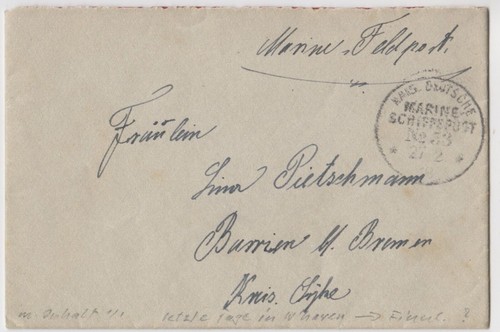 Marine-Feldpost.
KAIS. DEUTSCHE
MARINE-
SCHIFFSPOST
No 53
27 2
Fräulein
Lina Pietschmann
Barrien b/ Bremen
Kreis. Syke
m. Inhalt letzte Tage in W'haven →